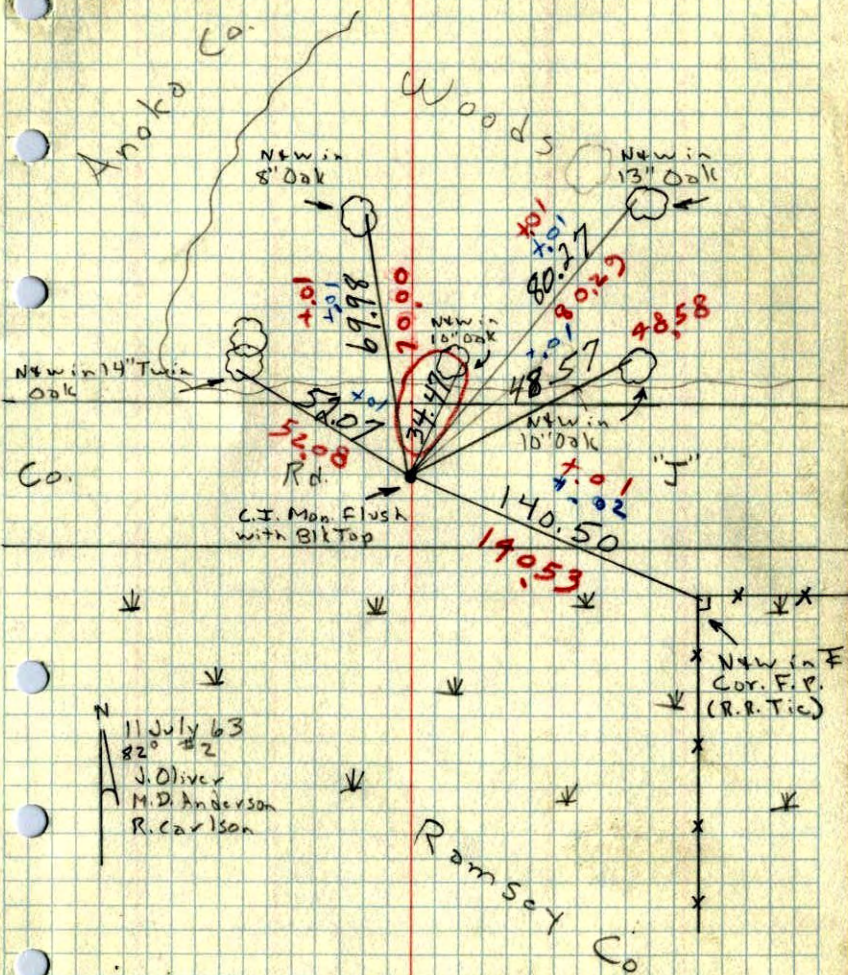 Anoka Co.
Woods
N&W in
8" Oak
N&W in
13" Oak
+.01
+.01
69.98
70.00
+.01
+.01
80.27
80.29
N&W in
10" Oak
34.47
+.01
48.57
48.58
N&W in
10" Oak
N&W in 14" Twin
Oak
+.01
52.07
52.08
Co.
Rd.
"J"
C.I. Mon. Flush
with Blk Top
+.01
+.02
140.50
140.53
N&W in E
Cor. F.P.
(R.R. Tie)
N
11 July 63
82° #2
J. Oliver
M.D. Anderson
R. Carlson
Ramsey
Co